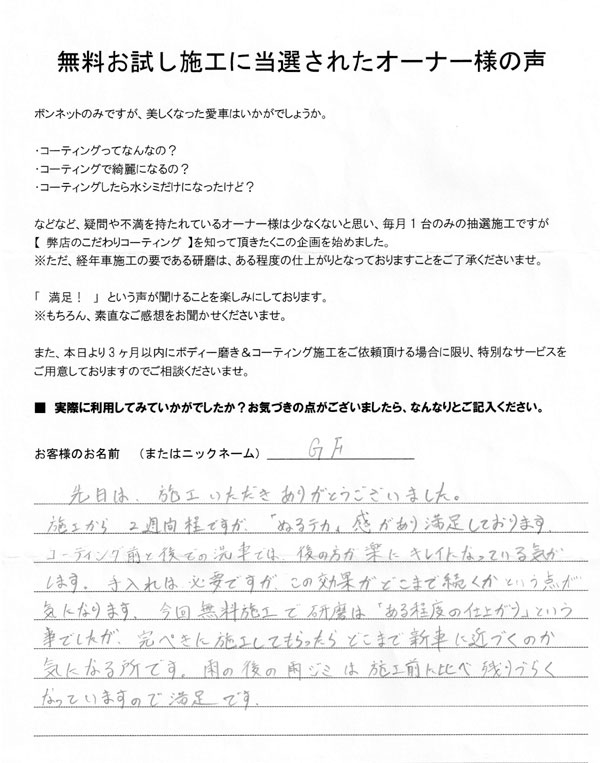 無料お試し施工に当選されたオーナー様の声
ボンネットのみですが、美しくなった愛車はいかがでしょうか。
・コーティングってなんなの？
・コーティングで綺麗になるの？
・コーティングしたら水シミだけになったけど？
などなど、疑問や不満を持たれているオーナー様は少なくないと思い、毎月１台のみの抽選施工ですが
【 弊店のこだわりコーティング 】を知って頂きたくこの企画を始めました。
※ただ、経年車施工の要である研磨は、ある程度の仕上がりとなっておりますことをご了承くださいませ。
「 満足！ 」という声が聞けることを楽しみにしております。
※もちろん、素直なご感想をお聞かせくださいませ。
また、本日より３ヶ月以内にボディー磨き＆コーティング施工をご依頼頂ける場合に限り、特別なサービスを
ご用意しておりますのでご相談くださいませ。
■ 実際に利用してみていかがでしたか？お気づきの点がございましたら、なんなりとご記入ください。
お客様のお名前 （またはニックネーム） GF
先日は、施工いただきありがとうございました。
施工から 2週間程ですが、「ぬるテカ」感があり満足しております。
コーティング前と後での洗車では、後の方が楽にキレイになっている気が
します。手入れは必要ですが、この効果がどこまで続くかという点が
気になります。今回無料施工で研磨は「ある程度の仕上がり」という
事でしたが、完ぺきに施工してもらったらどこまで新車に近づくのか
気になる所です。雨の後の雨ジミは施工前に比べ残りづらく
なっていますので満足です。